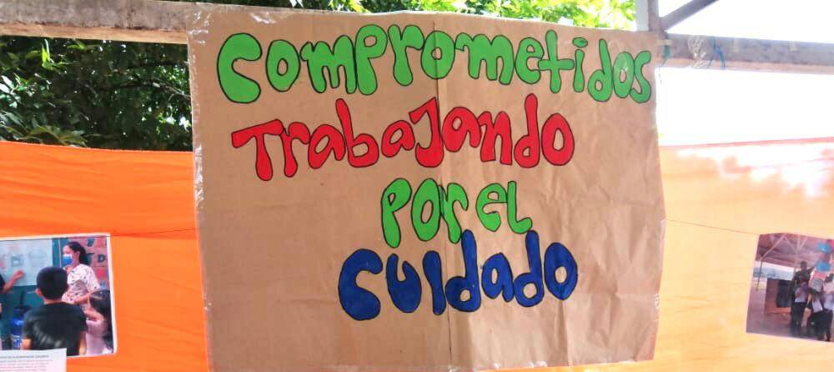 Comprometidos
Trabajando
por el
cuidado